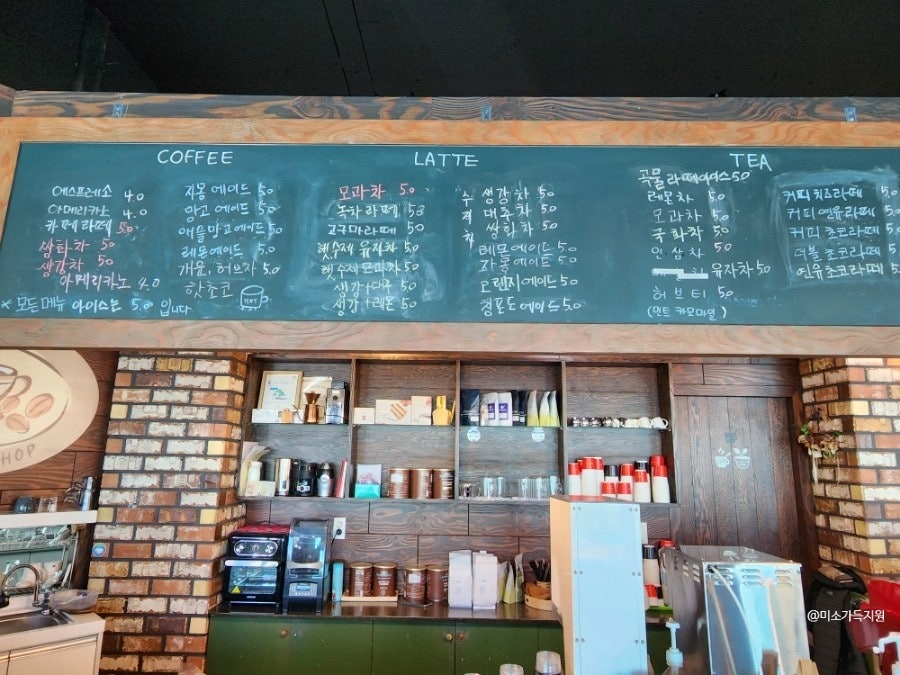 COFFEE
에스프레소 4.0
아메리카노 4.0
카페라떼 5.0
쌍화차 5.0
생강차 5.0
아메리카노 4.0
* 모든메뉴 아이스는 5.0 입니다
자몽 에이드 5.0
망고 에이드 5.0
애플망고에이드 5.0
레몬에이드 5.0
허브차 5.0
핫쵸코
HOT
LATTE
모과차 5.0
녹차라떼 5.0
고구마라떼 5.0
햇수제 유자차 5.0
햇수제 모과차 5.0
생강+대추 5.0
생강+레몬 5.0
수제차
생강차 5.0
대추차 5.0
쌍화차 5.0
레몬에이드 5.0
자몽에이드 5.0
오렌지에이드 5.0
청포도에이드 5.0
TEA
곡물라떼아이스 5.0
레몬차 5.0
모과차 5.0
국화차 5.0
인삼차 5.0
유자차 5.0
허브티 5.0
(민트 캬모마일)
커피치즈라떼 5.0
커피연유라떼 5.0
커피쵸코라떼 5
더블쵸코라떼 5
연유쵸코라떼 5.0
HOP
@미소가득지원